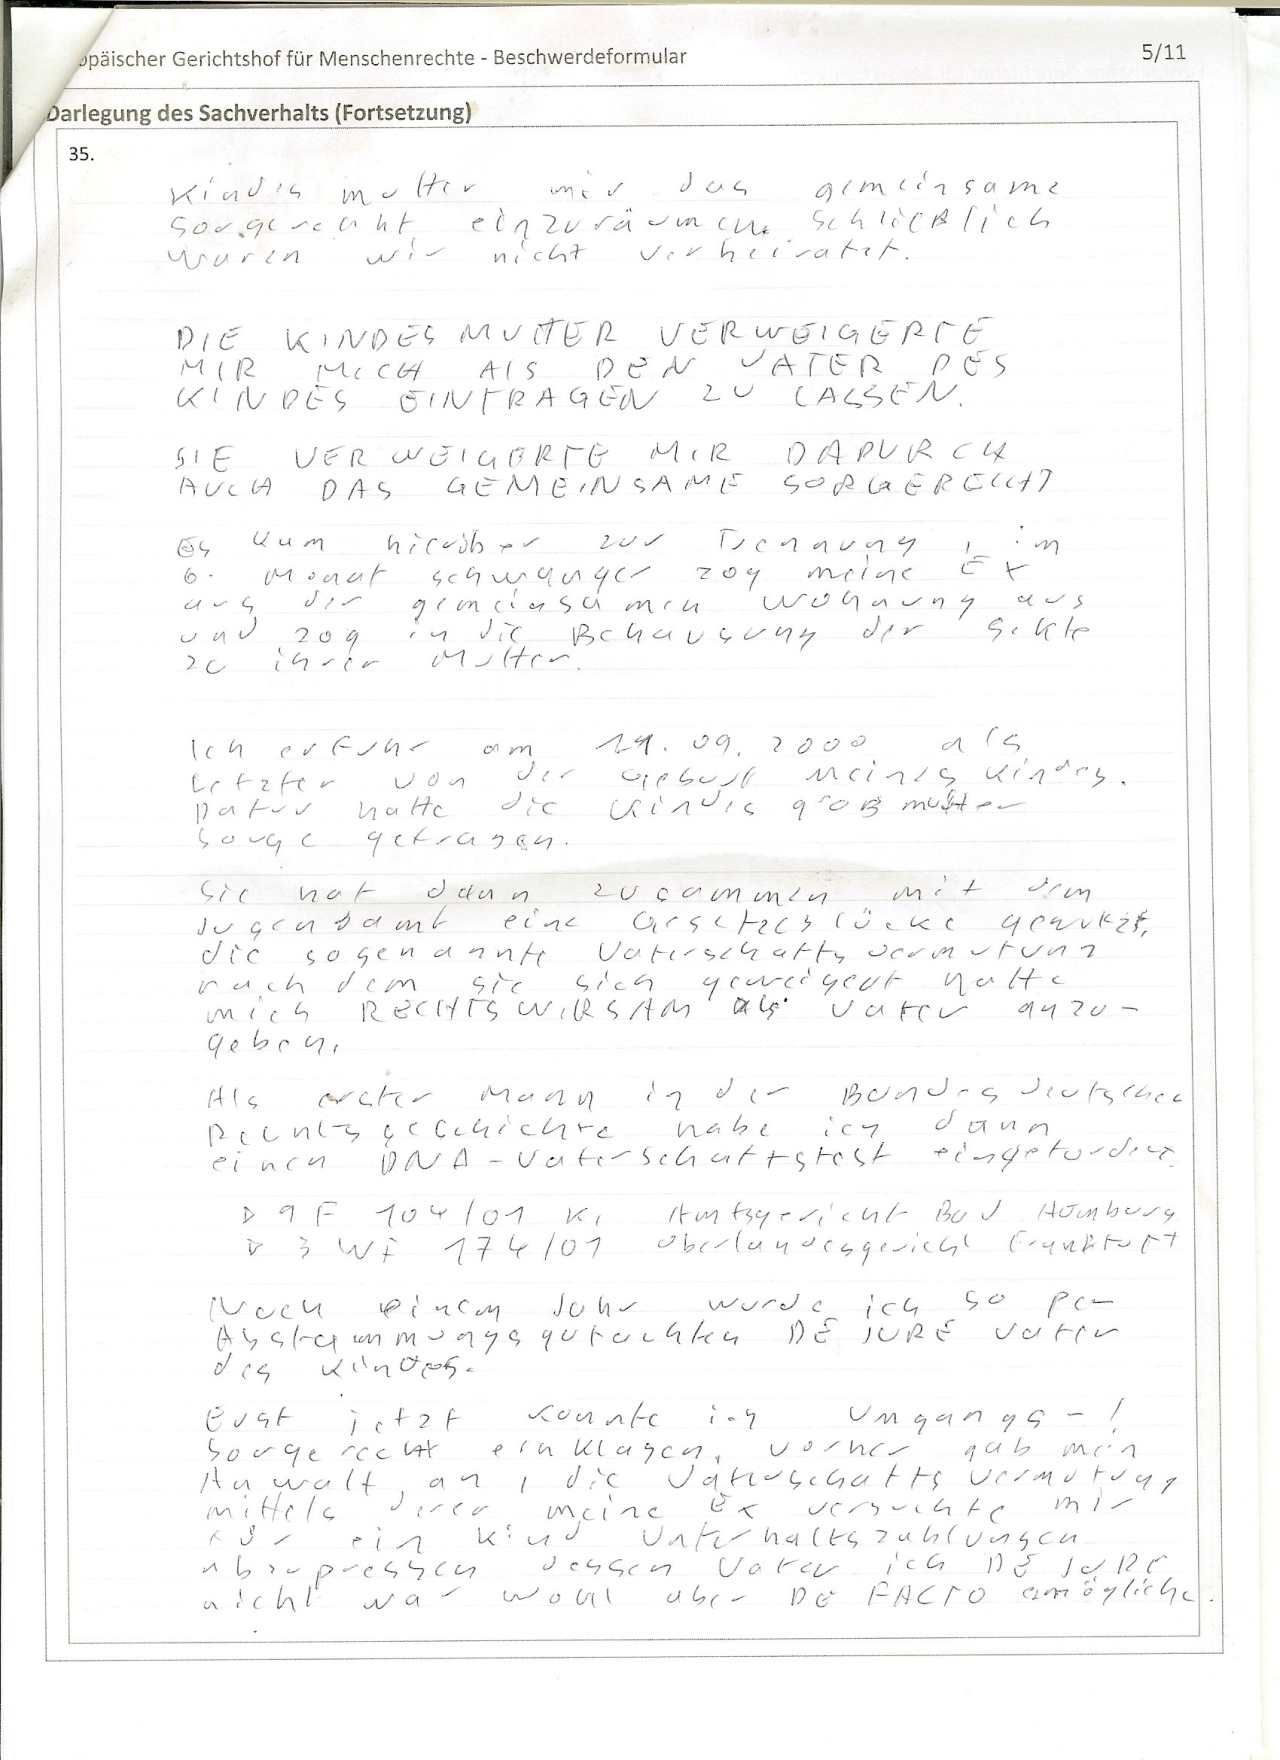 opäischer Gerichtshof für Menschenrechte - Beschwerdeformular 5/11
Darlegung des Sachverhalts (Fortsetzung)
35.
Kindes mutter mir das gemeinsame
Sorgerecht einzuräumen. Schließlich
waren wir nicht verheiratet.
DIE KINDESMUTTER VERWEIGERTE
MIR MICH ALS DEN VATER DES
KINDES EINTRAGEN ZU LASSEN.
SIE VERWEIGERTE MIR DADURCH
AUCH DAS GEMEINSAME SORGERECHT
Es kam hierüber zur Trennung, im
6. Monat schwanger zog meine Ex
aus der gemeinsamen Wohnung aus
und zog in die Behausung der Sekte
zu ihrer Mutter.
Ich erfuhr am 09.2000 als
letzter von der Geburt meines Kindes.
Dafür hatte die Kindes großmutter
Sorge getragen.
Sie hat dann zusammen mit dem
Jugendamt eine Gesetzeslücke genutzt,
die sogenannte Vaterschaftsvermutung
nach dem sie sich geweigert hatte
mich RECHTSWIRSAM als Vater anzu-
geben.
Als erster Mann in der Bundesdeutschen
Rechtsgeschichte habe ich dann
einen DNA-Vaterschaftstest eingefordert.
9 F 104/01 KI Amtsgericht Bad Homburg
3 WF 174/01 Oberlandesgericht Frankfurt
Nach einem Jahr wurde ich so per
Abstammungsgutachten DE JURE Vater
des Kindes.
Erst jetzt konnte ich Umgangs-/
Sorgerecht einklagen, vorher gab mein
Anwalt, an, die Vaterschaftsvermutung
mittels derer meine Ex versuchte mir
für ein Kind Unterhaltszahlungen
abzupressen dessen Vater ich DE JURE
nicht war wohl aber DE FACTO